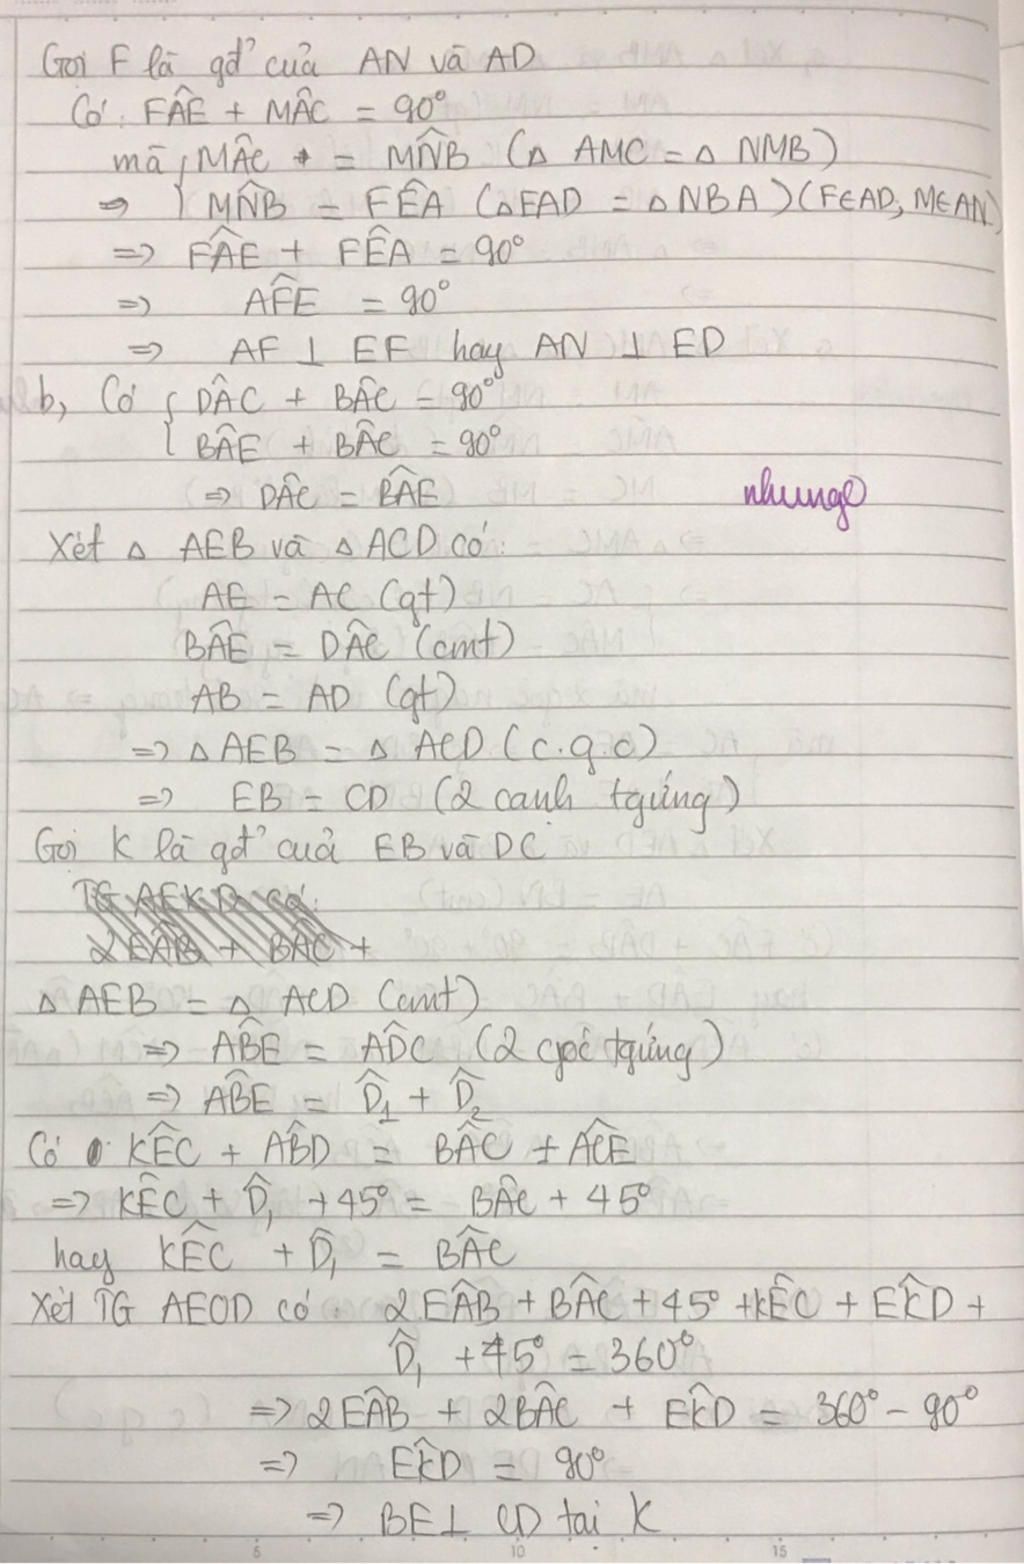 Gọi F là gđ' của AN và AD
Có: FÂE + MÂC = 90°
mà { MÂC = MN̂B (Δ AMC = Δ NMB)
=> MN̂B = FÊA (ΔEAD = ΔNBA) (F∈AD, M∈AN)
=> FÂE + FÊA = 90°
=> AF̂E = 90°
=> AF ⊥ EF hay AN ⊥ ED
b, Có { DÂC + BÂC = 90°
BÂE + BÂC = 90°
=> DÂC = BÂE
nhung
Xét Δ AEB và Δ ACD có:
AE = AC (gt)
BÂE = DÂC (cmt)
AB = AD (gt)
=> Δ AEB = Δ ACD (c.g.c)
=> EB = CD (2 cạnh tgứng)
Gọi K là gđ' của EB và DC
TG AEKD có:
2EÂB + BÂC +
Δ AEB = Δ ACD (cmt)
=> AB̂E = AD̂C (2 góc tgứng)
=> AB̂E = D̂1 + D̂2
Có KÊC + AB̂D = BÂC + AĈE
=> KÊC + D̂1 + 45° = BÂC + 45°
hay KÊC + D̂1 = BÂC
Xét TG AEOD có: 2EÂB + BÂC + 45° + KÊC + EK̂D +
D̂1 + 45° = 360°
=> 2EÂB + 2BÂC + EK̂D = 360° - 90°
=> EK̂D = 90°
=> BE ⊥ CD tại K
5 10 15